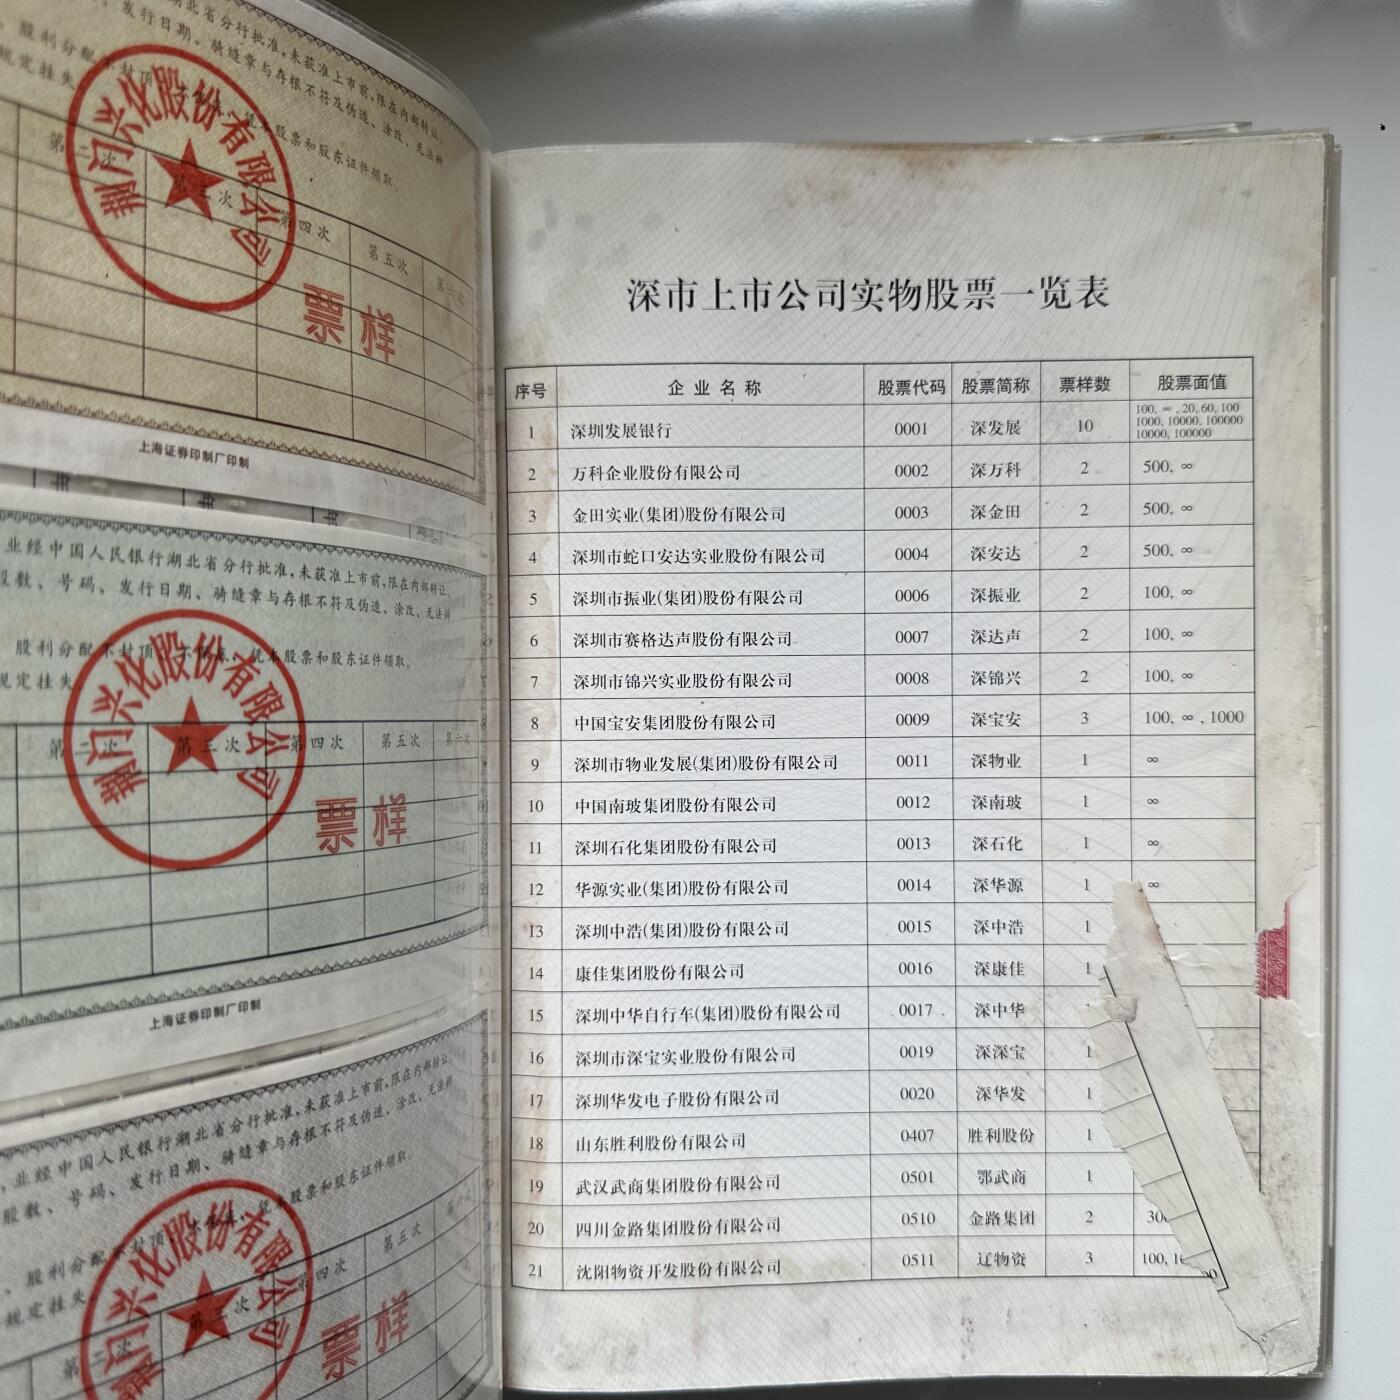 湖北省分行批准,未获准上市前,限在内部转让
、发行日期、骑缝章与存根不符及伪造、涂改、无法辨
股利分配不封顶、不保底、凭本股票和股东证件领取。
规定挂失
荆门兴化股份有限公司
第二次 第三次 第四次 第五次 第六次
票样
上海证券印制厂印制
业经中国人民银行湖北省分行批准,未获准上市前,限在内部转让
股数、号码、发行日期、骑缝章与存根不符及伪造、涂改、无法辨
股利分配不封顶、不保底、凭本股票和股东证件领取。
规定挂失
荆门兴化股份有限公司
第二次 第三次 第四次 第五次 第六次
票样
上海证券印制厂印制
业经中国人民银行湖北省分行批准,未获准上市前,限在内部转让
股数、号码、发行日期、骑缝章与存根不符及伪造、涂改、无法辨
股利分配不封顶、不保底、凭本股票和股东证件领取。
规定挂失
荆门兴化股份有限公司
第二次 第三次 第四次 第五次
票样
深市上市公司实物股票一览表
序号 企业名称 股票代码 股票简称 票样数 股票面值
1 深圳发展银行 0001 深发展 10 100, ∞, 20, 60, 100
1000, 10000, 100000
10000, 100000
2 万科企业股份有限公司 0002 深万科 2 500, ∞
3 金田实业(集团)股份有限公司 0003 深金田 2 500, ∞
4 深圳市蛇口安达实业股份有限公司 0004 深安达 2 500, ∞
5 深圳市振业(集团)股份有限公司 0006 深振业 2 100, ∞
6 深圳市赛格达声股份有限公司 0007 深达声 2 100, ∞
7 深圳市锦兴实业股份有限公司 0008 深锦兴 2 100, ∞
8 中国宝安集团股份有限公司 0009 深宝安 3 100, ∞, 1000
9 深圳市物业发展(集团)股份有限公司 0011 深物业 1 ∞
10 中国南玻集团股份有限公司 0012 深南玻 1 ∞
11 深圳石化集团股份有限公司 0013 深石化 1 ∞
12 华源实业(集团)股份有限公司 0014 深华源 1 ∞
13 深圳中浩(集团)股份有限公司 0015 深中浩 1
14 康佳集团股份有限公司 0016 深康佳 1
15 深圳中华自行车(集团)股份有限公司 0017 深中华 1
16 深圳市深宝实业股份有限公司 0019 深深宝 1
17 深圳华发电子股份有限公司 0020 深华发 1
18 山东胜利股份有限公司 0407 胜利股份 1
19 武汉武商集团股份有限公司 0501 鄂武商 1
20 四川金路集团股份有限公司 0510 金路集团 2
21 沈阳物资开发股份有限公司 0511 辽物资 3 100,